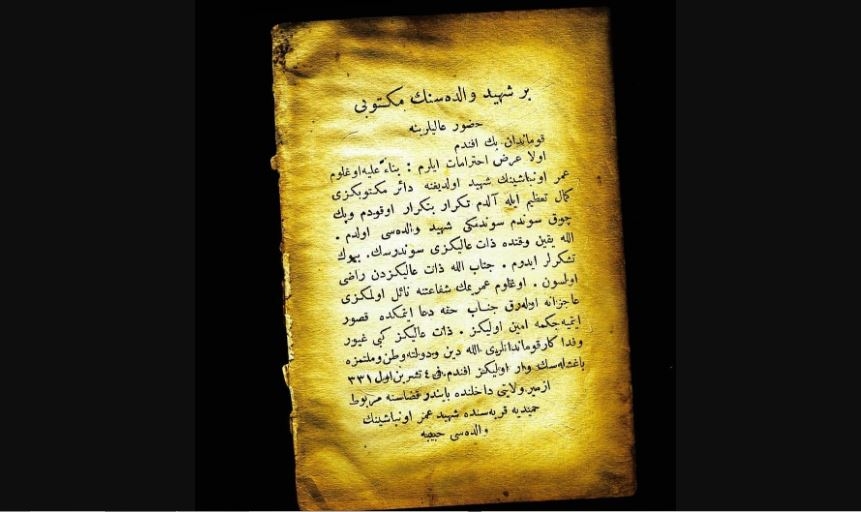 بر شهيد والده‌سنك مكتوبى
حضور عاليلرينه
قوماندان بك افندم
اولا عرض احترامات ايلرم : بناءً عليه اوغلوم
عمر اونباشينك شهيد اولديغنه دائر مكتوبكزى
كمال تعظيم ايله آلدم تكرار بتكرار اوقودم وپك
چوق سوندم سوندمكى شهيد والده‌سى اولدم .
الله يقين وقتده ذات عاليكزى سوندرسك. بيوك
تشكرلر ايدرم . جناب الله ذات عاليكزدن راضى
اولسون . اوغلوم عمريمك شفاعتنه نائل اولمكزى
عاجزانه اوله‌رق جناب حقه دعا ايتمكده قصور
ايتميه‌جكمه امين اوليكز . ذات عاليكز كبى غيور
وفدا كار قوماندانلرى الله دين ودولته وطن وملتمزه
باغشله‌سك وار اوليكز افندم. فى ٤ تشرين اول ٣٣١
ازمير ولايتى داخلنده بايندر قضاسنه مربوط
حميديه قريه‌سنده شهيد عمر اونباشينك
والده‌سى حبيبه